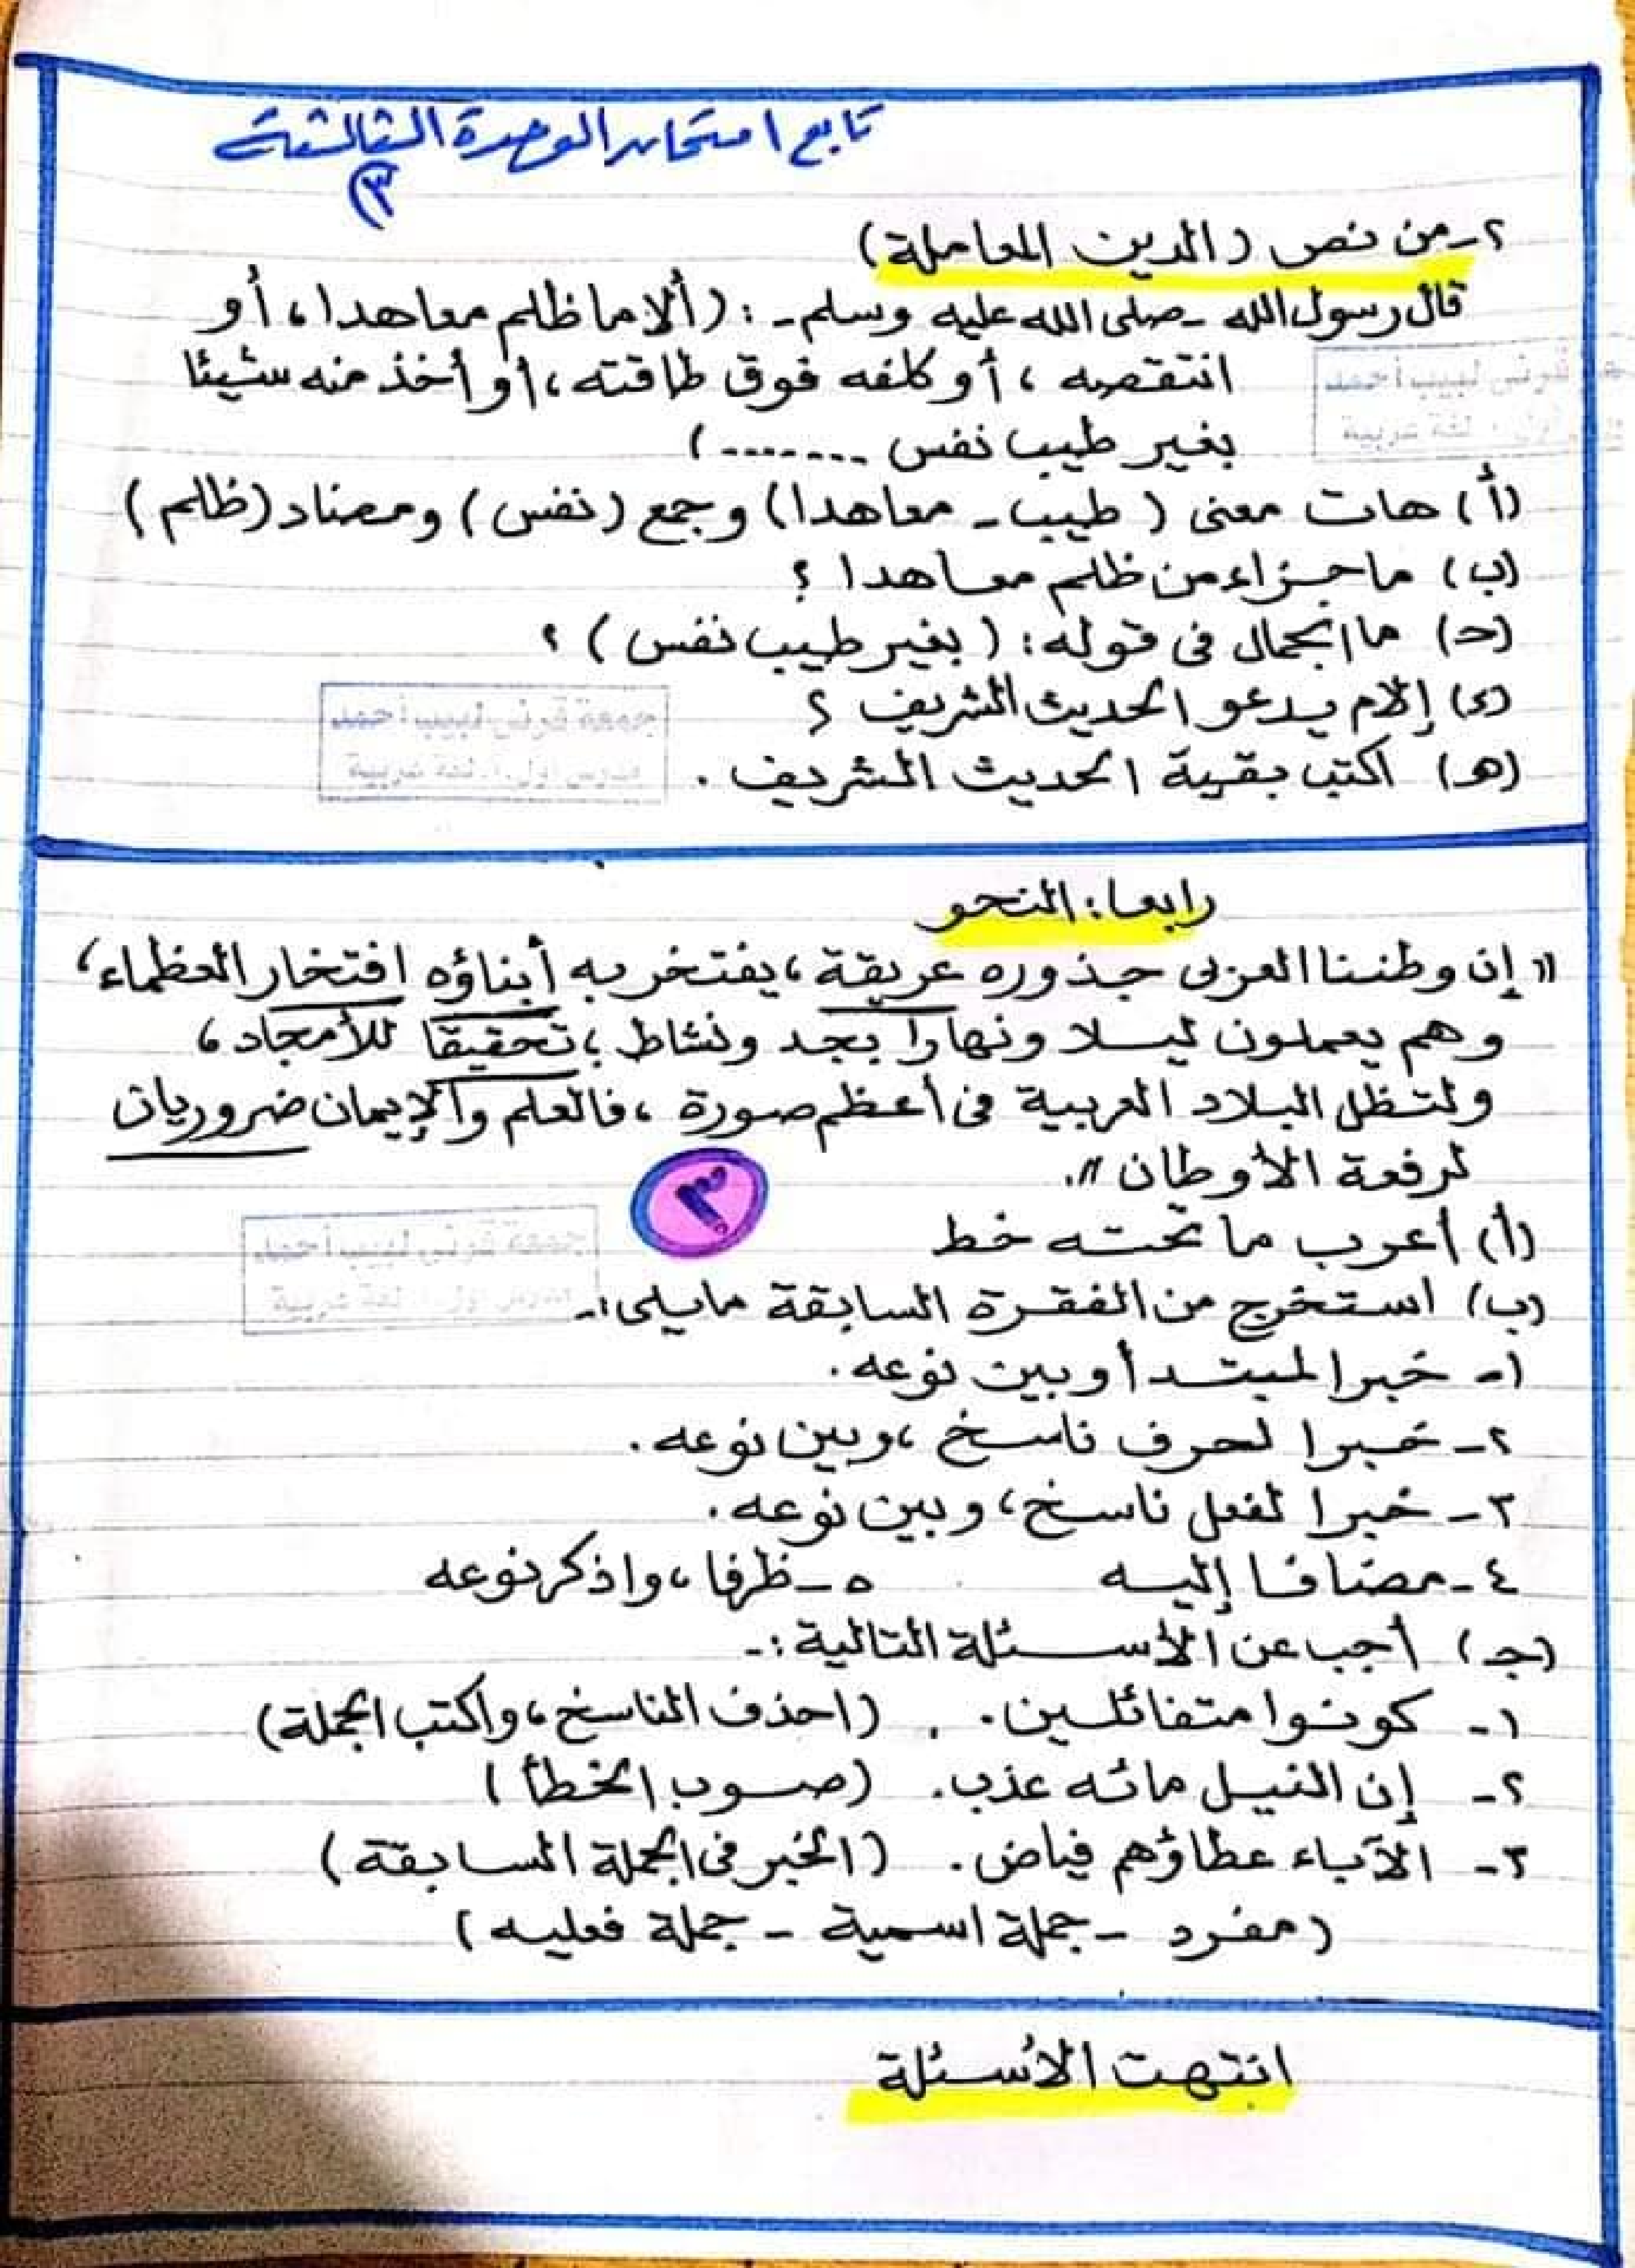 تابع امتحان الوحدة الثالثة
(٣)
٢- من نص (الدين المعاملة)
قال رسول الله - صلى الله عليه وسلم - : (ألا من ظلم معاهدا، أو
انتقصه، أو كلفه فوق طاقته، أو أخذ منه شيئا
بغير طيب نفس .......)
(أ) هات معنى (طيب - معاهدا) وجمع (نفس) ومضاد (ظلم)
(ب) ما جزاء من ظلم معاهدا ؟
(حـ) ما الجمال فى قوله: (بغير طيب نفس) ؟
(د) إلام يدعو الحديث الشريف ؟
(هـ) اكتب بقية الحديث الشريف .
جمعة قرنى لبيب أحمد
مدرس أول أ. لغة عربية
رابعا: النحو
" إن وطننا العربى جذوره عريقة، يفتخر به أبناؤه افتخار العظماء،
وهم يعملون ليلا ونهارا بجد ونشاط؛ تحقيقا للأمجاد،
ولتظل البلاد العربية فى أعظم صورة، فالعلم والإيمان ضروريان
لرفعة الأوطان ".
٣
(أ) أعرب ما تحته خط
(ب) استخرج من الفقرة السابقة ما يلى:-
جمعة قرنى لبيب أحمد
مدرس أول أ. لغة عربية
١- خبرا لمبتدأ وبين نوعه.
٢- خبرا لحرف ناسخ، وبين نوعه.
٣- خبرا لفعل ناسخ، وبين نوعه.
٤- مضافا إليه ٥- ظرفا، واذكر نوعه
(جـ) أجب عن الأسئلة التالية:-
١- كونوا متفائلين. (احذف الناسخ، واكتب الجملة)
٢- إن النيل مائه عذب. (صوب الخطأ)
٣- الآباء عطاؤهم فياض. (الخبر فى الجملة السابقة)
(مفرد - جملة اسمية - جملة فعليه)
انتهت الأسئلة